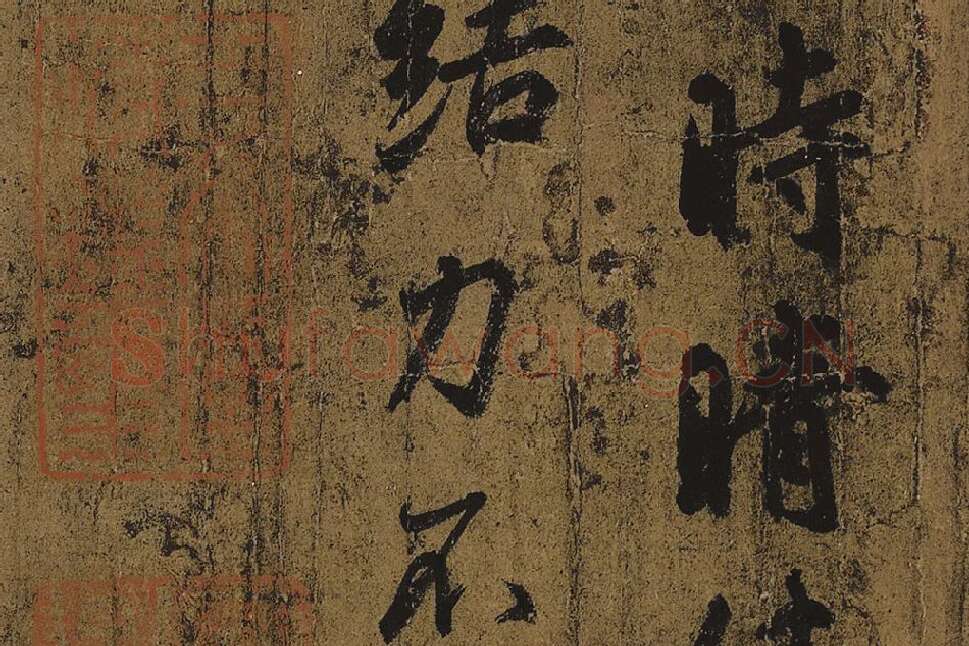 時晴
結力不
Shufawang.CN